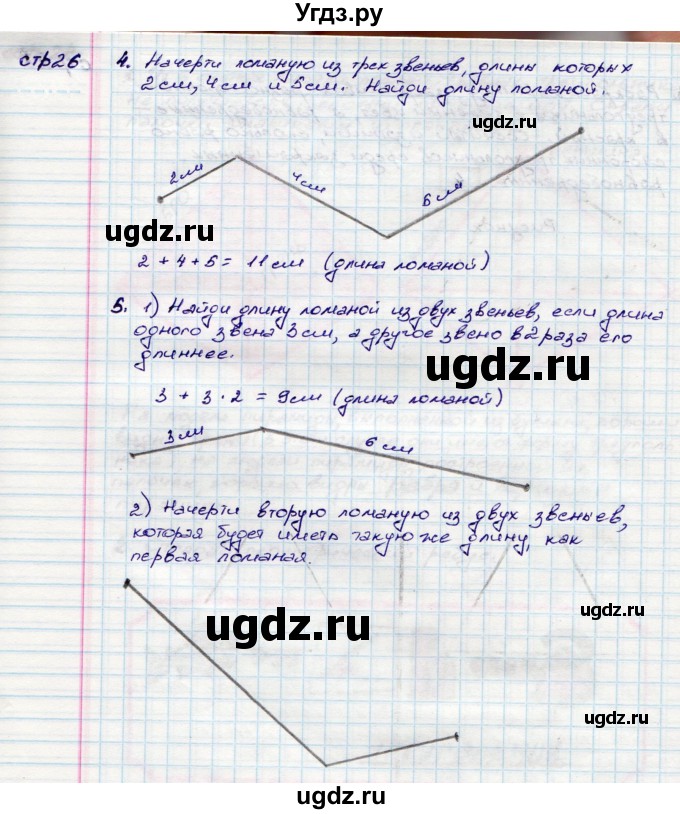 Угдз.ру
стр26
4. Начерти ломаную из трех звеньев, длины которых
2см, 4см и 5см. Найди длину ломаной.
ugdz.ru
2см
4см
6см
ugdz.ru
2 + 4 + 5 = 11см (длина ломаной)
5. 1) Найди длину ломаной из двух звеньев, если длина
одного звена 3см, а другое звено в 2 раза его
длиннее.
ugdz.ru
3 + 3 · 2 = 9см (длина ломаной)
3см
6см
2) Начерти вторую ломаную из двух звеньев,
которая будет иметь такую же длину, как
первая ломаная.
ugdz.ru
ugdz.ru
ugdz.ru
ugdz.ru